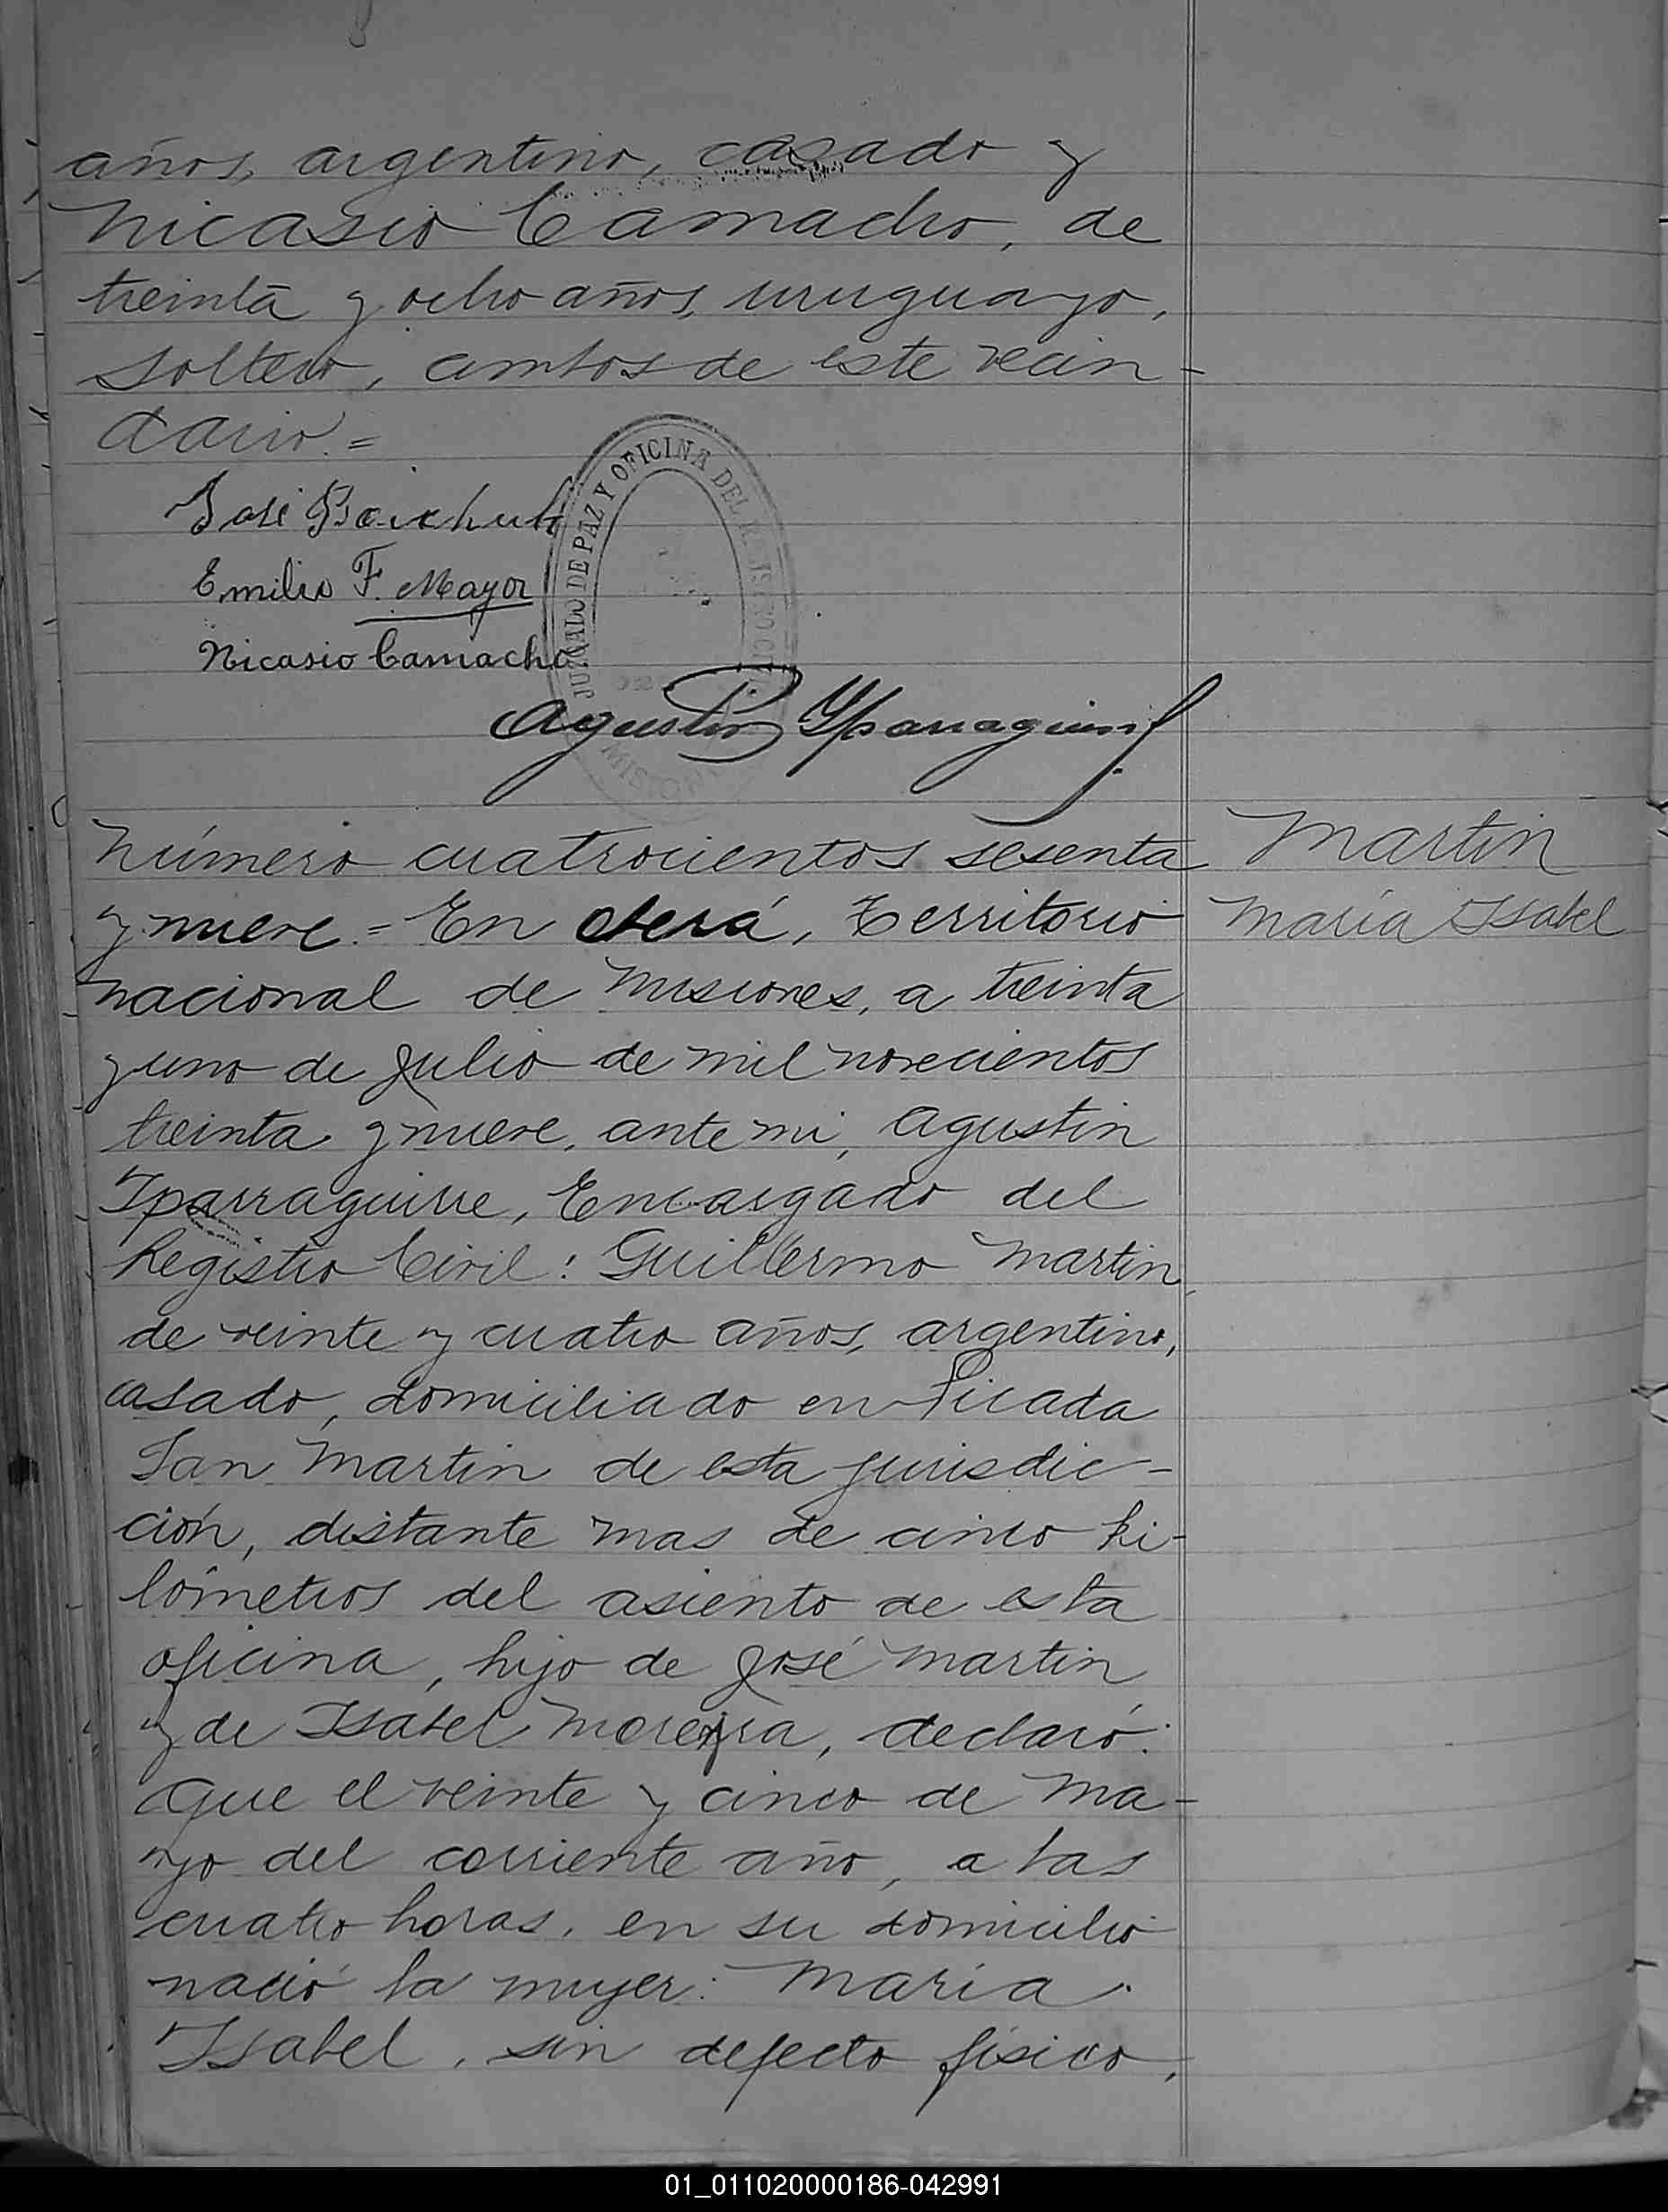 años, argentino, casado y
Nicasio Camacho, de
treinta y ocho años, uruguayo,
soltero, ambos de este vecin-
dario.=
José
Emilio F. Mayor
Nicasio Camacho
JUZGADO DE PAZ Y OFICINA DEL REGISTRO CIVIL
MISIONES
Agustin Yparraguirre
Número cuatrocientos sesenta
y nueve.= En Oberá, Territorio
nacional de Misiones, a treinta
y uno de Julio de mil novecientos
treinta y nueve, ante mi, Agustin
Iparraguirre, Encargado del
Registro Civil: Guillermo Martin,
de veinte y cuatro años, argentino,
casado, domiciliado en Picada
San Martin de esta jurisdic-
ción, distante mas de cinco ki-
lómetros del asiento de esta
oficina, hijo de José Martin
y de Isabel Moreyra, declaró:
Que el veinte y cinco de Ma-
yo del corriente año, a las
cuatro horas, en su domicilio
nació la mujer: María
Isabel, sin defecto físico,
Martin
María Isabel
01_011020000186-042991